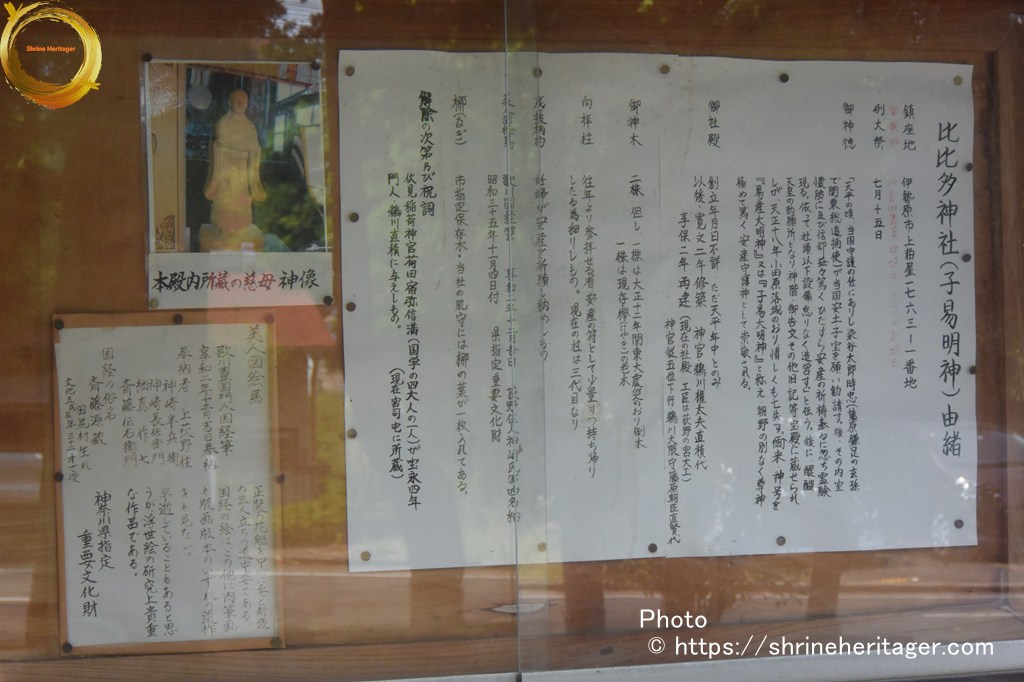 比比多神社(子易明神)由緒
鎮座地 伊勢原市上粕屋一七六三ー一番地
例大祭 七月十五日
御神徳 「天平の頃、当国守護の任にありし染谷太郎時忠(藤原鎌足の玄孫
にて関東総追捕使)が当国安土子宝を願い勧請す。後、その内室
現る。依って社頭以下設備怠りなく造営す」と伝う。後に 醍醐
天皇の勅願所となり神階 御告文その他旧記等宝殿に蔵せられ
しが 天正十八年小田原落城のおり惜しくも亡失す。爾来 神号を
『易産大明神』又は『子易大明神』と称え 朝野の別なく尊神
極めて篤く 安産守護神として崇敬される。
御社殿 創立年月日不詳 ただ天平年中とのみ
以後、寛文二年修築 神官 鵜川権太夫直積代
享保一年 再建 (現在の社殿 工匠は荻野の宮大工)
御神木 二株 但し 一株は大正十二年関東大震災のおり倒木
一株は現存欅(けやき)の老木
向拝柱 往年より参拝せる者 安産の符として少量ずつ持ち帰り
したる為細りしもの。現在の柱は三代目なり
底抜柄杓 妊婦が安産を祈願し納めしもの
昭和三十五年十一月四日付 県指定重要文化財
梛(なぎ) 市指定保存木・当社の肌守には梛の葉が一枚入れてある。
解除の次第及び祝詞
伏見稲荷神官荷田宿弥信満(国学の四大人の一人)が宝永四年
門人・鵜川直積に与えしもの。(現在宮司宅に所蔵)
本殿内所蔵の慈母神像
美人図絵馬
歌川豊国門人国経筆
奉納者 上荻野住
神崎半兵衛
神崎長左衛門
斉藤伝右衛門
国経の俗名
斉藤源蔵
正装の花魁
の三人立ち
国経の絵はこの他に肉筆画
も版画版本のいずれの遺作
早逝していることもあると思
うが浮世絵の研究上貴重
な作品である。
神奈川県指定
重要文化財
Shrine Heritager
Photo
© https://shrineheritager.com